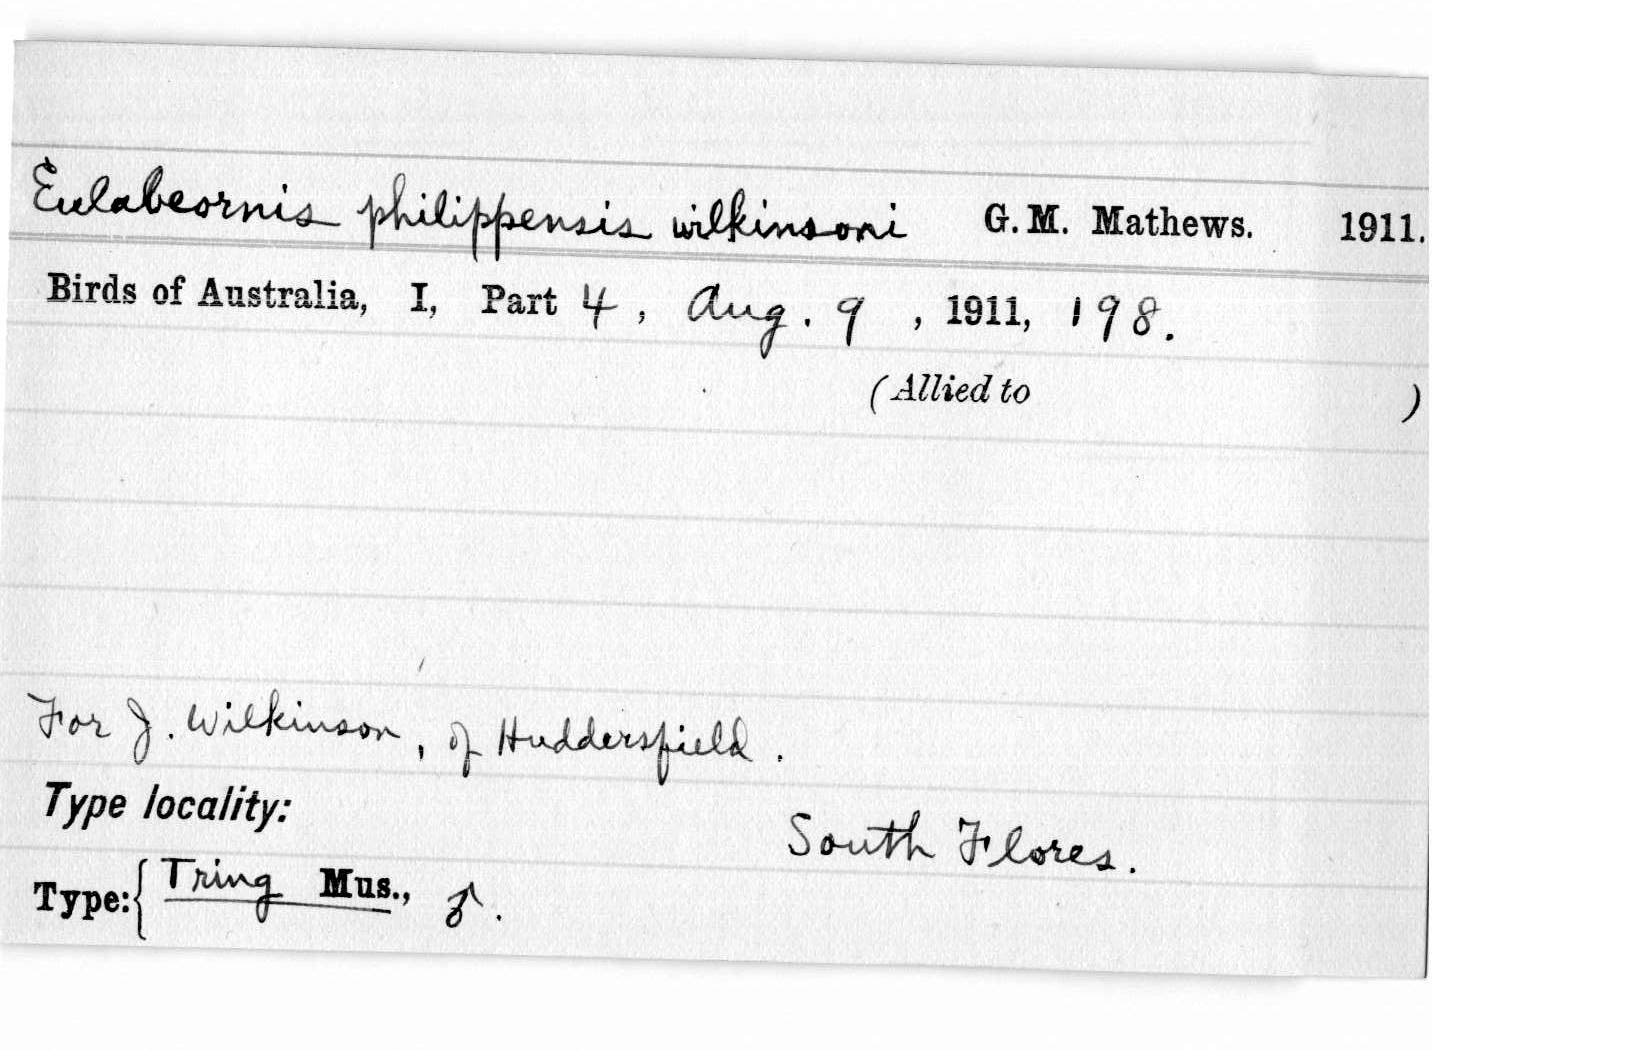 Eulabeornis philippensis wilkinsoni G. M. Mathews. 1911.
Birds of Australia, I, Part 4, Aug. 9, 1911, 198.
(Allied to )
For J. Wilkinson, of Huddersfield.
Type locality:
South Flores.
Type: { Tring Mus., ♂.